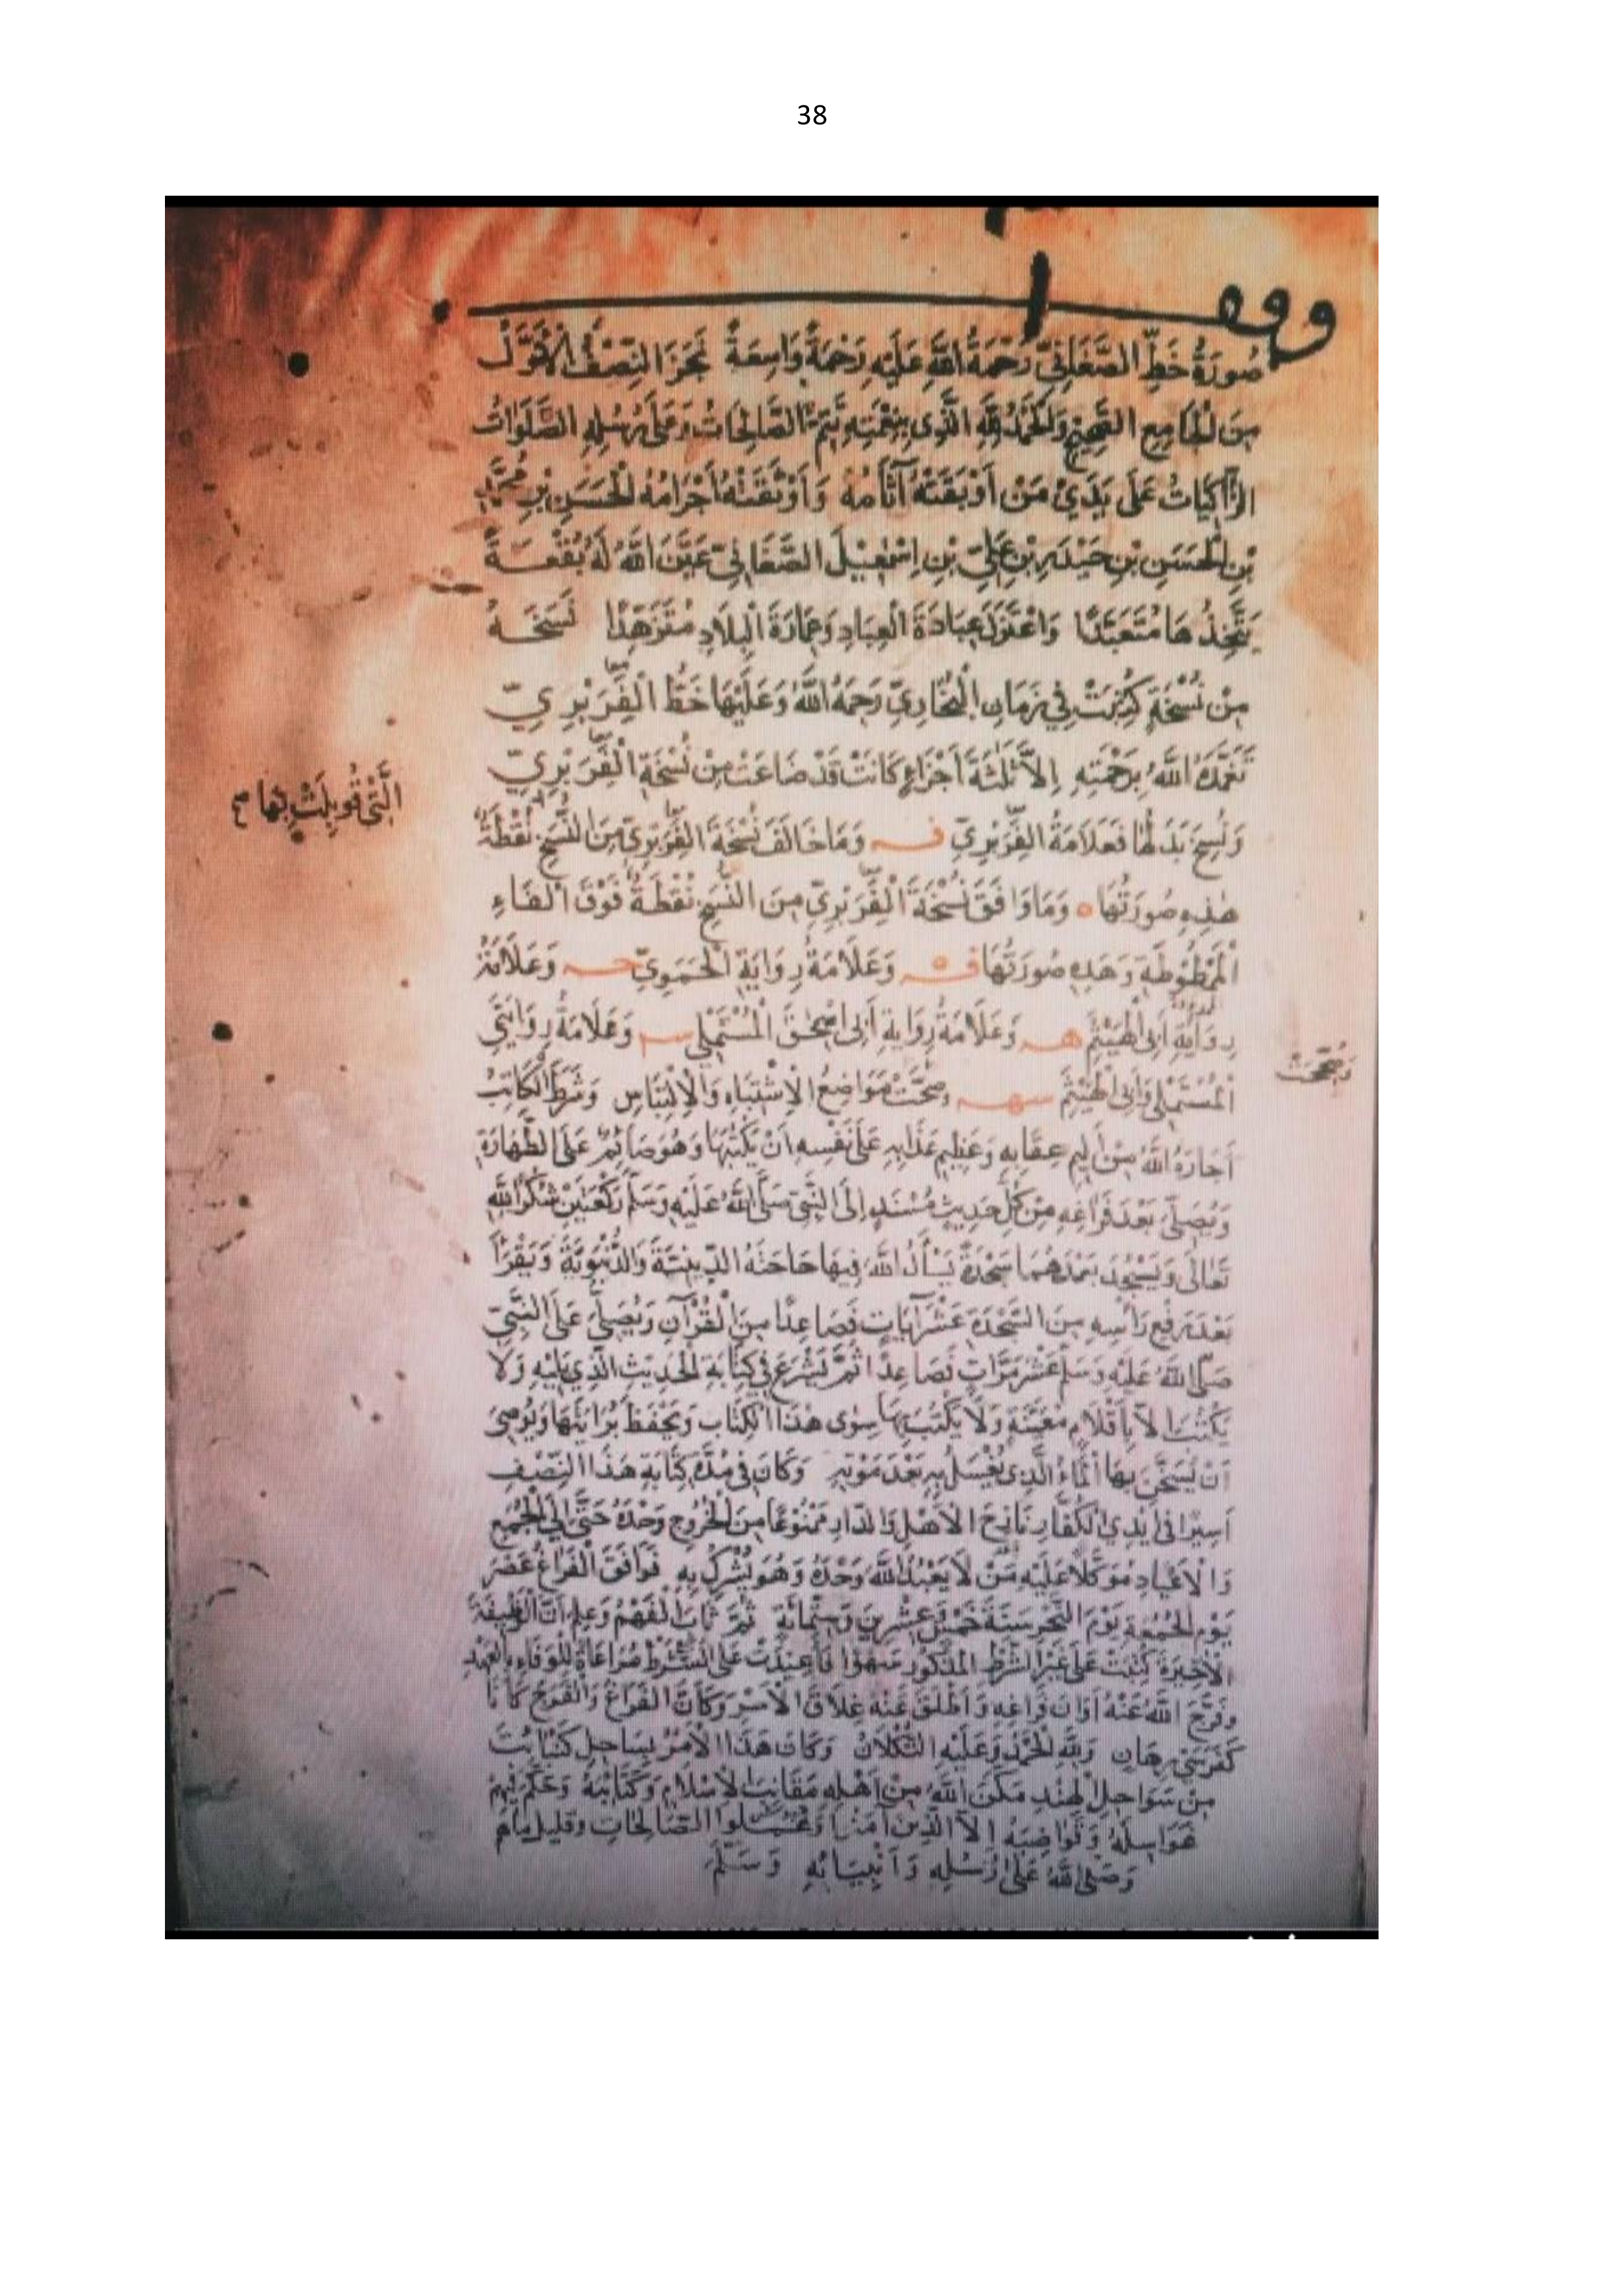 38
وقف
صُورَةُ خَطِّ الصَّغَانِيِّ رَحْمَةُ اللهِ عَلَيْهِ رَحْمَةً وَاسِعَةً نَجَزَ النِّصْفُ الْأَوَّلُ
مِنَ الْجَامِعِ الصَّحِيحِ وَالْحَمْدُ لِلَّهِ الَّذِي بِنِعْمَتِهِ تَتِمُّ الصَّالِحَاتُ وَعَلَى رُسُلِهِ الصَّلَوَاتُ
الزَّاكِيَاتُ عَلَى يَدَيْ مَنْ أَوْبَقَتْهُ آثَامُهُ وَأَوْثَقَتْهُ أَجْرَامُهُ الْحَسَنِ بْنِ مُحَمَّدِ
بْنِ الْحَسَنِ بْنِ حَيْدَرِ بْنِ عَلِيِّ بْنِ إِسْمٰعِيلَ الصَّغَانِيِّ عَيَّنَ اللهُ لَهُ بُقْعَةً
يَتَّخِذُهَا مُتَعَبَّدًا وَاعْتَزَلَ عِبَادَةَ الْعِبَادِ وَعِمَارَةَ الْبِلَادِ مُتَزَهِّدًا نَسَخَهُ
مِنْ نُسْخَةٍ كُتِبَتْ فِي زَمَانِ الْبُخَارِيِّ رَحِمَهُ اللهُ وَعَلَيْهَا خَطُّ الْفِرَبْرِيِّ
تَغَمَّدَهُ اللهُ بِرَحْمَتِهِ إِلَّا ثَلٰثَةَ أَجْزَاءٍ كَانَتْ قَدْ ضَاعَتْ مِنْ نُسْخَةِ الْفِرَبْرِيِّ
الَّتِي قُوبِلَتْ بِهَا صح
وَنُسِخَ بَدَلُهَا فَعَلَامَةُ الْفِرَبْرِيِّ فـ وَمَا خَالَفَ نُسْخَةَ الْفِرَبْرِيِّ مِنَ النُّسَخِ نُقْطَةٌ
هٰذِهِ صُورَتُهَا ه وَمَا وَافَقَ نُسْخَةَ الْفِرَبْرِيِّ مِنَ النُّسَخِ نُقْطَةٌ فَوْقَ الْفَاءِ
الْمَمْطُوطَةِ وَهَذِهِ صُورَتُهَا فـ وَعَلَامَةُ رِوَايَةِ الْحَمَوِيِّ حـ وَعَلَامَةُ
رِوَايَةِ أَبِي الْهَيْثَمِ هـ وَعَلَامَةُ رِوَايَةِ أَبِي إِسْحٰقَ الْمُسْتَمْلِي سـ وَعَلَامَةُ رِوَايَتَيِ
الْمُسْتَمْلِي وَأَبِي الْهَيْثَمِ سهـ وصُحِّحَتْ مَوَاضِعُ الِاشْتِبَاهِ وَالِالْتِبَاسِ وَشَرَطَ الْكَاتِبُ
أَجَارَهُ اللهُ مِنْ أَلِيمِ عِقَابِهِ وَعَظِيمِ عَذَابِهِ عَلَى نَفْسِهِ أَنْ يَكْتُبَهَا وَهُوَ صَائِمٌ عَلَى الطَّهَارَةِ
وَيُصَلِّيَ بَعْدَ فَرَاغِهِ مِنْ كُلِّ حَدِيثٍ مُسْنَدٍ إِلَى النَّبِيِّ صَلَّى اللهُ عَلَيْهِ وَسَلَّمَ رَكْعَتَيْنِ شُكْرًا لِلهِ
تَعَالَى وَيَسْجُدَ بَعْدَهُمَا سَجْدَةً يَسْأَلُ اللهَ فِيهَا حَاجَتَهُ الدِّينِيَّةَ وَالدُّنْيَوِيَّةَ وَيَقْرَأَ
بَعْدَ رَفْعِ رَأْسِهِ مِنَ السَّجْدَةِ عَشْرَ آيَاتٍ فَصَاعِدًا مِنَ الْقُرْآنِ وَيُصَلِّيَ عَلَى النَّبِيِّ
صَلَّى اللهُ عَلَيْهِ وَسَلَّمَ عَشْرَ مَرَّاتٍ فَصَاعِدًا ثُمَّ يَشْرَعَ فِي كِتَابَةِ الْحَدِيثِ الَّذِي يَلِيهِ وَلَا
يَكْتُبَ إِلَّا بِأَقْلَامٍ مُعَيَّنَةٍ وَلَا يَكْتُبَ بِهَا سِوَى هٰذَا الْكِتَابِ وَيَحْفَظَ بُرَايَتَهَا وَيُوصِيَ
أَنْ يُسَخَّنَ بِهَا الْمَاءُ الَّذِي يُغْسَلُ بِهِ بَعْدَ مَوْتِهِ وَكَانَ فِي مُدَّةِ كِتَابَةِ هَذَا النِّصْفِ
أَسِيرًا فِي أَيْدِي الْكُفَّارِ نَازِحَ الْأَهْلِ وَالدَّارِ مَمْنُوعًا مِنَ الْخُرُوجِ وَحْدَهُ حَتَّى إِلَى الْجُمَعِ
وَالْأَعْيَادِ مُوَكَّلًا عَلَيْهِ مَنْ لَا يَعْبُدُ اللهَ وَحْدَهُ وَهُوَ يُشْرِكُ بِهِ فَوَافَقَ الْفَرَاغُ عَصْرَ
يَوْمِ الْجُمُعَةِ يَوْمَ النَّحْرِ سَنَةَ خَمْسٍ وَعِشْرِينَ وَسِتِّمِائَةٍ ثُمَّ ثَابَ الْفَهْمُ وَعَلِمَ أَنَّ الْوَظِيفَةَ
الْأَخِيرَةَ كُتِبَتْ عَلَى غَيْرِ الشَّرْطِ الْمَذْكُورِ سَهْوًا فَأُعِيدَتْ عَلَى الشَّرْطِ مُرَاعَاةً لِلْوَفَاءِ بِالْعَهْدِ
وَفَرَّجَ اللهُ عَنْهُ أَوَانَ فَرَاغِهِ وَأَطْلَقَ عَنْهُ غِلَاقَ الْأَسْرِ وَكَانَ الْفَرَاغُ وَالْفَرَجُ كَانَا
كَفَرَسَيْ رِهَانٍ وَلِلهِ الْحَمْدُ وَعَلَيْهِ التُّكْلَانُ وَكَانَ هَذَا الْأَمْرُ بِسَاحِلِ كَنْبَايَتَ
مِنْ سَوَاحِلِ الْهِنْدِ مَكَّنَ اللهُ مِنْ أَهْلِهِ مَقَانِبَ الْإِسْلَامِ وَكَتَائِبَهُ وَحَكَّمَ فِيهِمْ
عَوَاسِلَهُ وَقَوَاضِبَهُ إِلَّا الَّذِينَ آمَنُوا وَعَمِلُوا الصَّالِحَاتِ وَقَلِيلٌ مَا هُمْ
وَصَلَّى اللهُ عَلَى رُسُلِهِ وَأَنْبِيَائِهِ وَسَلَّمَ